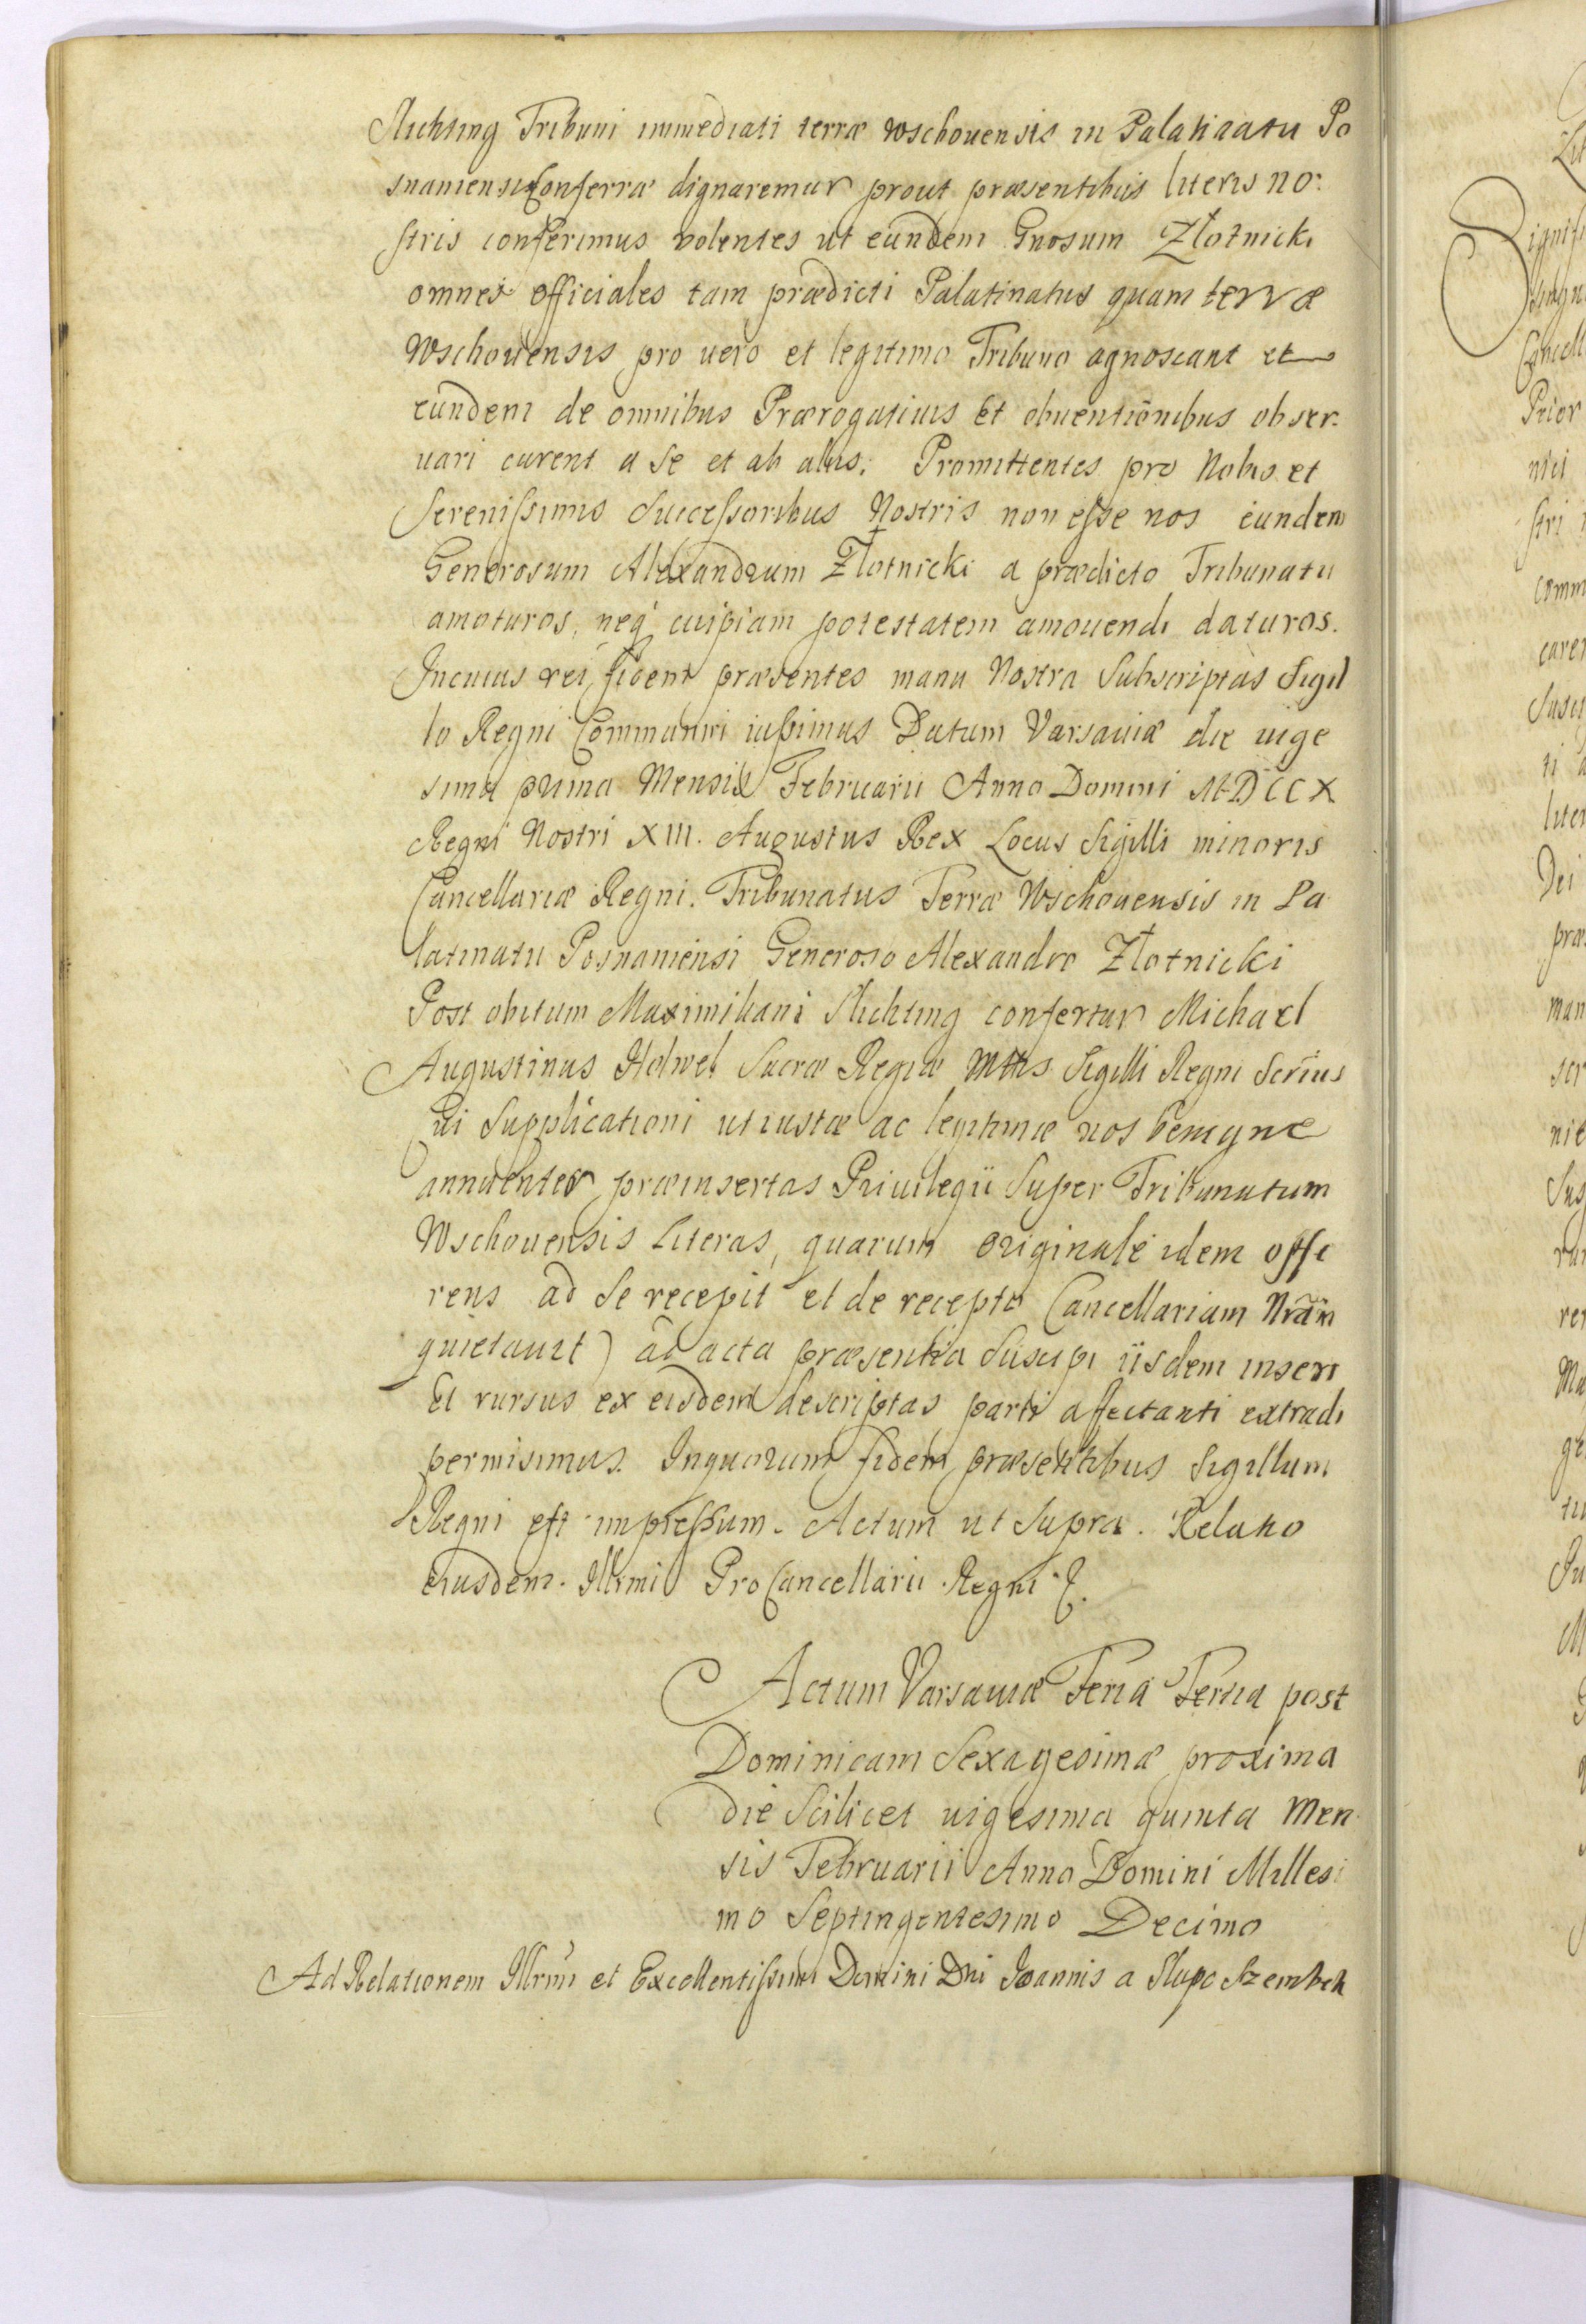 Slichting Tribuni immediati terræ Wschouensis in Palatinatu Po
snaniensi Conferræ dignaremur prout præsentibus literis no:
stris conferimus volentes ut eundem Gnosum Złotnicki
omnes officiales tam prædicti Palatinatus quam terræ
Wschouensis pro uero et legitimo Tribuno agnoscant et
eundem de omnibus Prærogatiuis Et obuentionibus obser-
uari curent a se et ab alijs; Promittentes pro Nobis et
Serenissimis Successoribus Nostris non esse nos eundem
Generosum Alexandrum Złotnicki a prædicto Tribunatu
amoturos, neq cuipiam potestatem amouendi daturos.
In cuius rei fidem præsentes manu Nostra Subscriptas Sigil
lo Regni Communiri iussimus Datum Varsauiæ die uige
sima prima Mensis Februarii Anno Domini MDCCX
Regni Nostri XIII. Augustus Rex Locus Sigilli minoris
Cancellariæ Regni. Tribunatus Terræ Wschouensis in Pa
latinatu Posnaniensi Generoso Alexandro Złotnicki
Post obitum Maximiliani Slichting confertur Michael
Augustinus Holwel Sacræ Regiæ Mttis Sigilli Regni Scrius
Qui Supplicationi ut iustæ ac legitimæ nos benigne
annuentes præinsertas Priuilegii Super Tribunatum
Wschouensis Literas, quarum originale idem offe
rens ad se recepit et de recepto Cancellariam Nram
quietauit) ad acta præsentia Suscipi iisdem inseri
Et rursus ex eisdem descriptas parti affectanti extradi
permisimus. In quorum fidem præsentibus Sigillum
Regni est impressum. Actum ut Supra. Relatio
eiusdem. Illrmi ProCancellarii Regni
Actum Varsauiæ Feria Tertia post
Dominicam Sexagesimæ proxima
die Scilicet uigesima quinta Men
sis Februarii Anno Domini Millesi
mo Septingentesimo Decimo
Ad Relationem Illrmi et Excellentissimi Domini Dni Joannis a Slupo Szembek